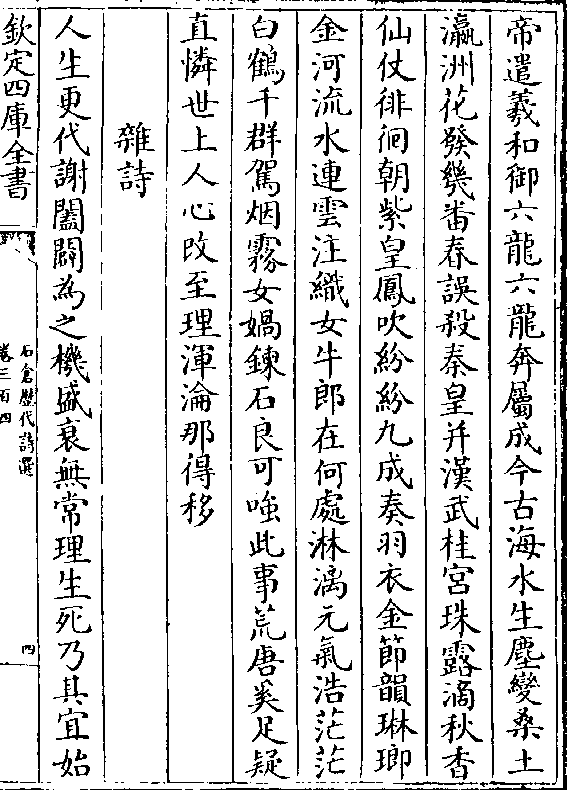 帝遣羲和御六龍六龍奔屬成今古海水生塵變桑土
瀛洲花發幾番春誤殺秦皇并漢武桂宮珠露滴秋香
仙仗徘徊朝紫皇鳳吹紛紛九成奏羽衣金節韻琳瑯
金河流水連雲注織女牛郎在何處淋漓元氣浩茫茫
白鶴千群駕烟霧女媧鍊石良可嗤此事荒唐奚足疑
直憐世上人心改至理渾淪那得移
雜詩
人生更代謝闔闢為之機盛衰無常理生死乃其宜始
欽定四庫全書
石倉歷代詩選
卷三百四
四